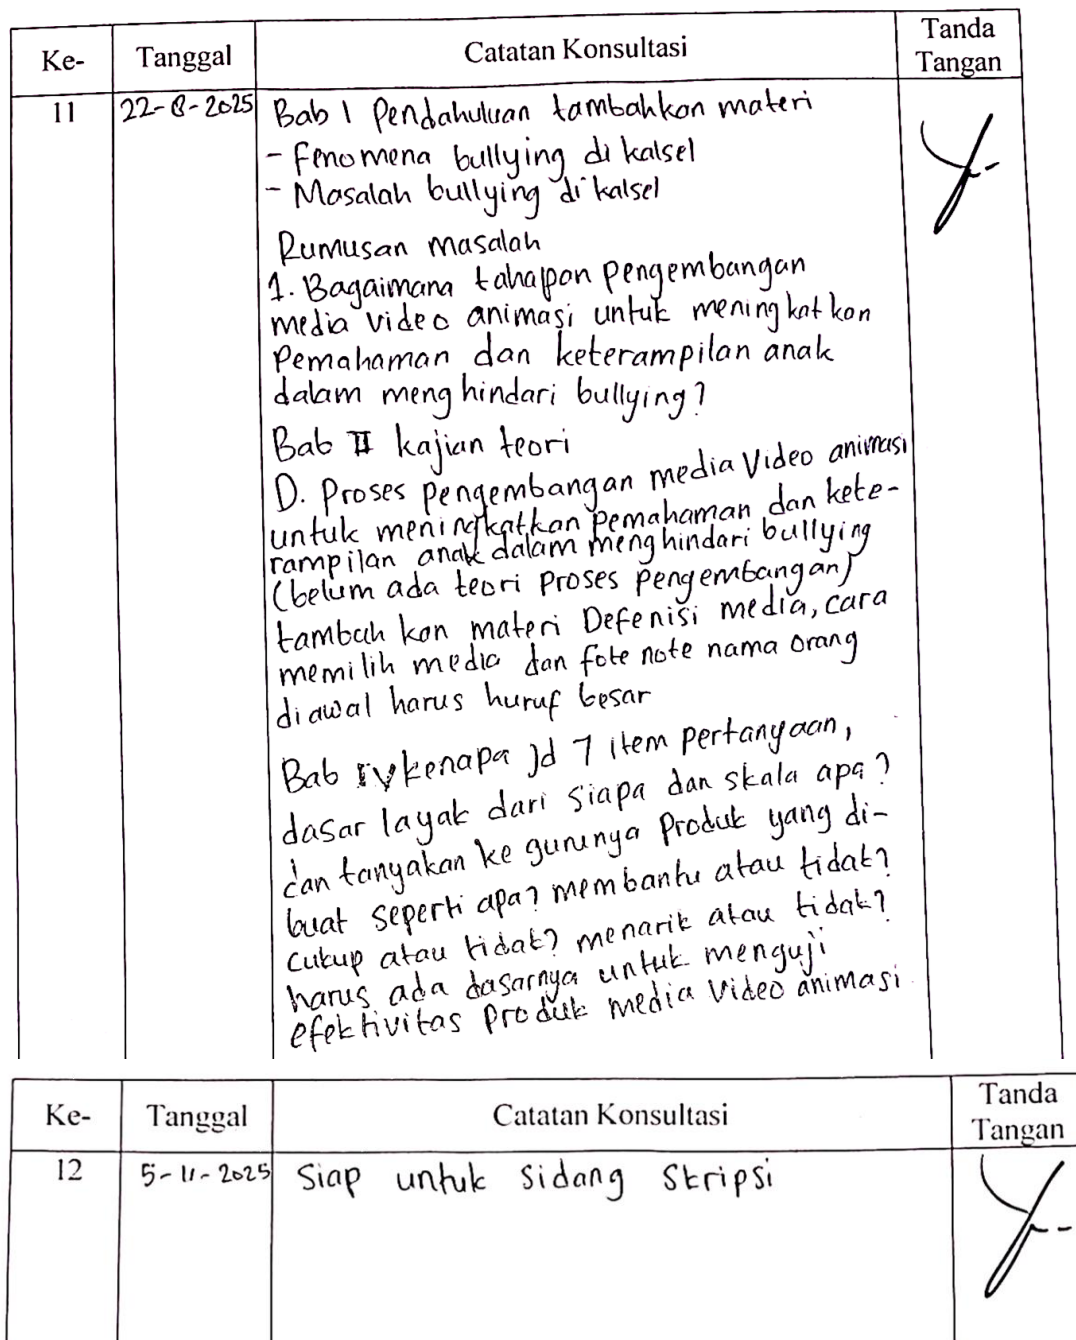 Ke-
Tanggal
Catatan Konsultasi
Tanda
Tangan
11
22-8-2025
Bab 1 Pendahuluan tambahkan materi
- Fenomena bullying di kalsel
- Masalah bullying di kalsel
Rumusan masalah
1. Bagaimana tahapan pengembangan
media video animasi untuk meningkatkan
Pemahaman dan keterampilan anak
dalam menghindari bullying?
Bab II kajian teori
D. Proses pengembangan media Video animasi
untuk meningkatkan pemahaman dan kete-
rampilan anak dalam menghindari bullying
(belum ada teori proses pengembangan)
tambah kan materi Defenisi media, cara
memilih media dan fote note nama orang
diawal harus huruf besar
Bab IV kenapa jd 7 item pertanyaan,
dasar layak dari siapa dan skala apa?
dan tanyakan ke gurunya Produk yang di-
buat seperti apa? membantu atau tidak?
cukup atau tidak? menarik atau tidak?
harus ada dasarnya untuk menguji
efektivitas produk media Video animasi
Ke-
Tanggal
Catatan Konsultasi
Tanda
Tangan
12
5-11-2025
Siap untuk Sidang Skripsi